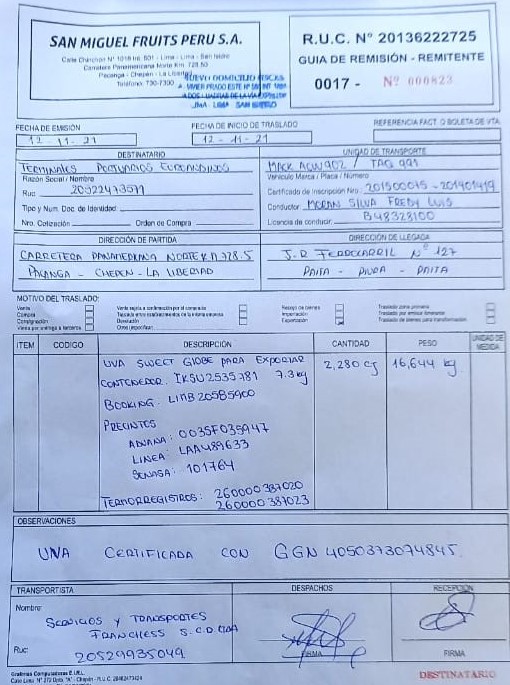 SAN MIGUEL FRUITS PERU S.A.
Calle Chinchon N° 1018 Int. 501 - Lima - Lima - San Isidro
Carretera Panamericana Norte Km. 728.50
Pacanga - Chepén - La Libertad
Teléfono: 730-7300
NUEVO DOMICILIO FISCAL
LIMA LIMA SAN ISIDRO
R.U.C. N° 20136222725
GUIA DE REMISIÓN - REMITENTE
0017 - N° 000823
FECHA DE EMISIÓN
12 - 11 - 21
FECHA DE INICIO DE TRASLADO
12 - 11 - 21
REFERENCIA FACT. O BOLETA DE VTA.
DESTINATARIO
TERMINALES PORTUARIOS EUROANDINOS
Razón Social / Nombre
Ruc: 20522473571
Tipo y Num. Doc. de Identidad
Nro. Cotización Orden de Compra
UNIDAD DE TRANSPORTE
MACK AOW902 / TAG 991
Vehículo Marca / Placa / Número
Certificado de Inscripción Nro.: 201500075 - 201401419
Conductor: MORAN SILVA FREDY LUIS
Licencia de conducir: B48328100
DIRECCIÓN DE PARTIDA
CARRETERA PANAMERICANA NORTE KM 728.5
PACANGA - CHEPEN - LA LIBERTAD
DIRECCIÓN DE LLEGADA
J.R FERROCARRIL N° 127
PAITA - PIURA - PAITA
MOTIVO DEL TRASLADO:
Venta
Compra
Consignación
Venta con entrega a terceros
Venta sujeta a confirmación por el comprador
Traslado entre establecimientos de la misma empresa
Devolución
Otros (especificar)
Recojo de bienes
Importación
Exportación
Traslado zona primaria
Traslado por emisor itinerante
Traslado de bienes para transformación
ITEM CODIGO DESCRIPCIÓN CANTIDAD PESO UNIDAD DE MEDIDA
UVA SWEET GLOBE PARA EXPORTAR 2,280 CJ 16,644 kg
CONTENEDOR: IKSU2535781 7.3 kg
BOOKING: LIMB20585900
PRECINTOS
ADUANA: 003SF035947
LINEA: LAA489633
SENASA: 101764
TERMORREGISTROS: 260000387020
260000387023
OBSERVACIONES
UVA CERTIFICADA CON GGN 4050373074845.
TRANSPORTISTA
Nombre: SERVICIOS Y TRANSPORTES
FRANCHESS S.C.R LTDA
Ruc: 20529935049
DESPACHOS
FIRMA
RECEPCIÓN
FIRMA
Grafimas Computadoras E.I.R.L.
DESTINATARIO